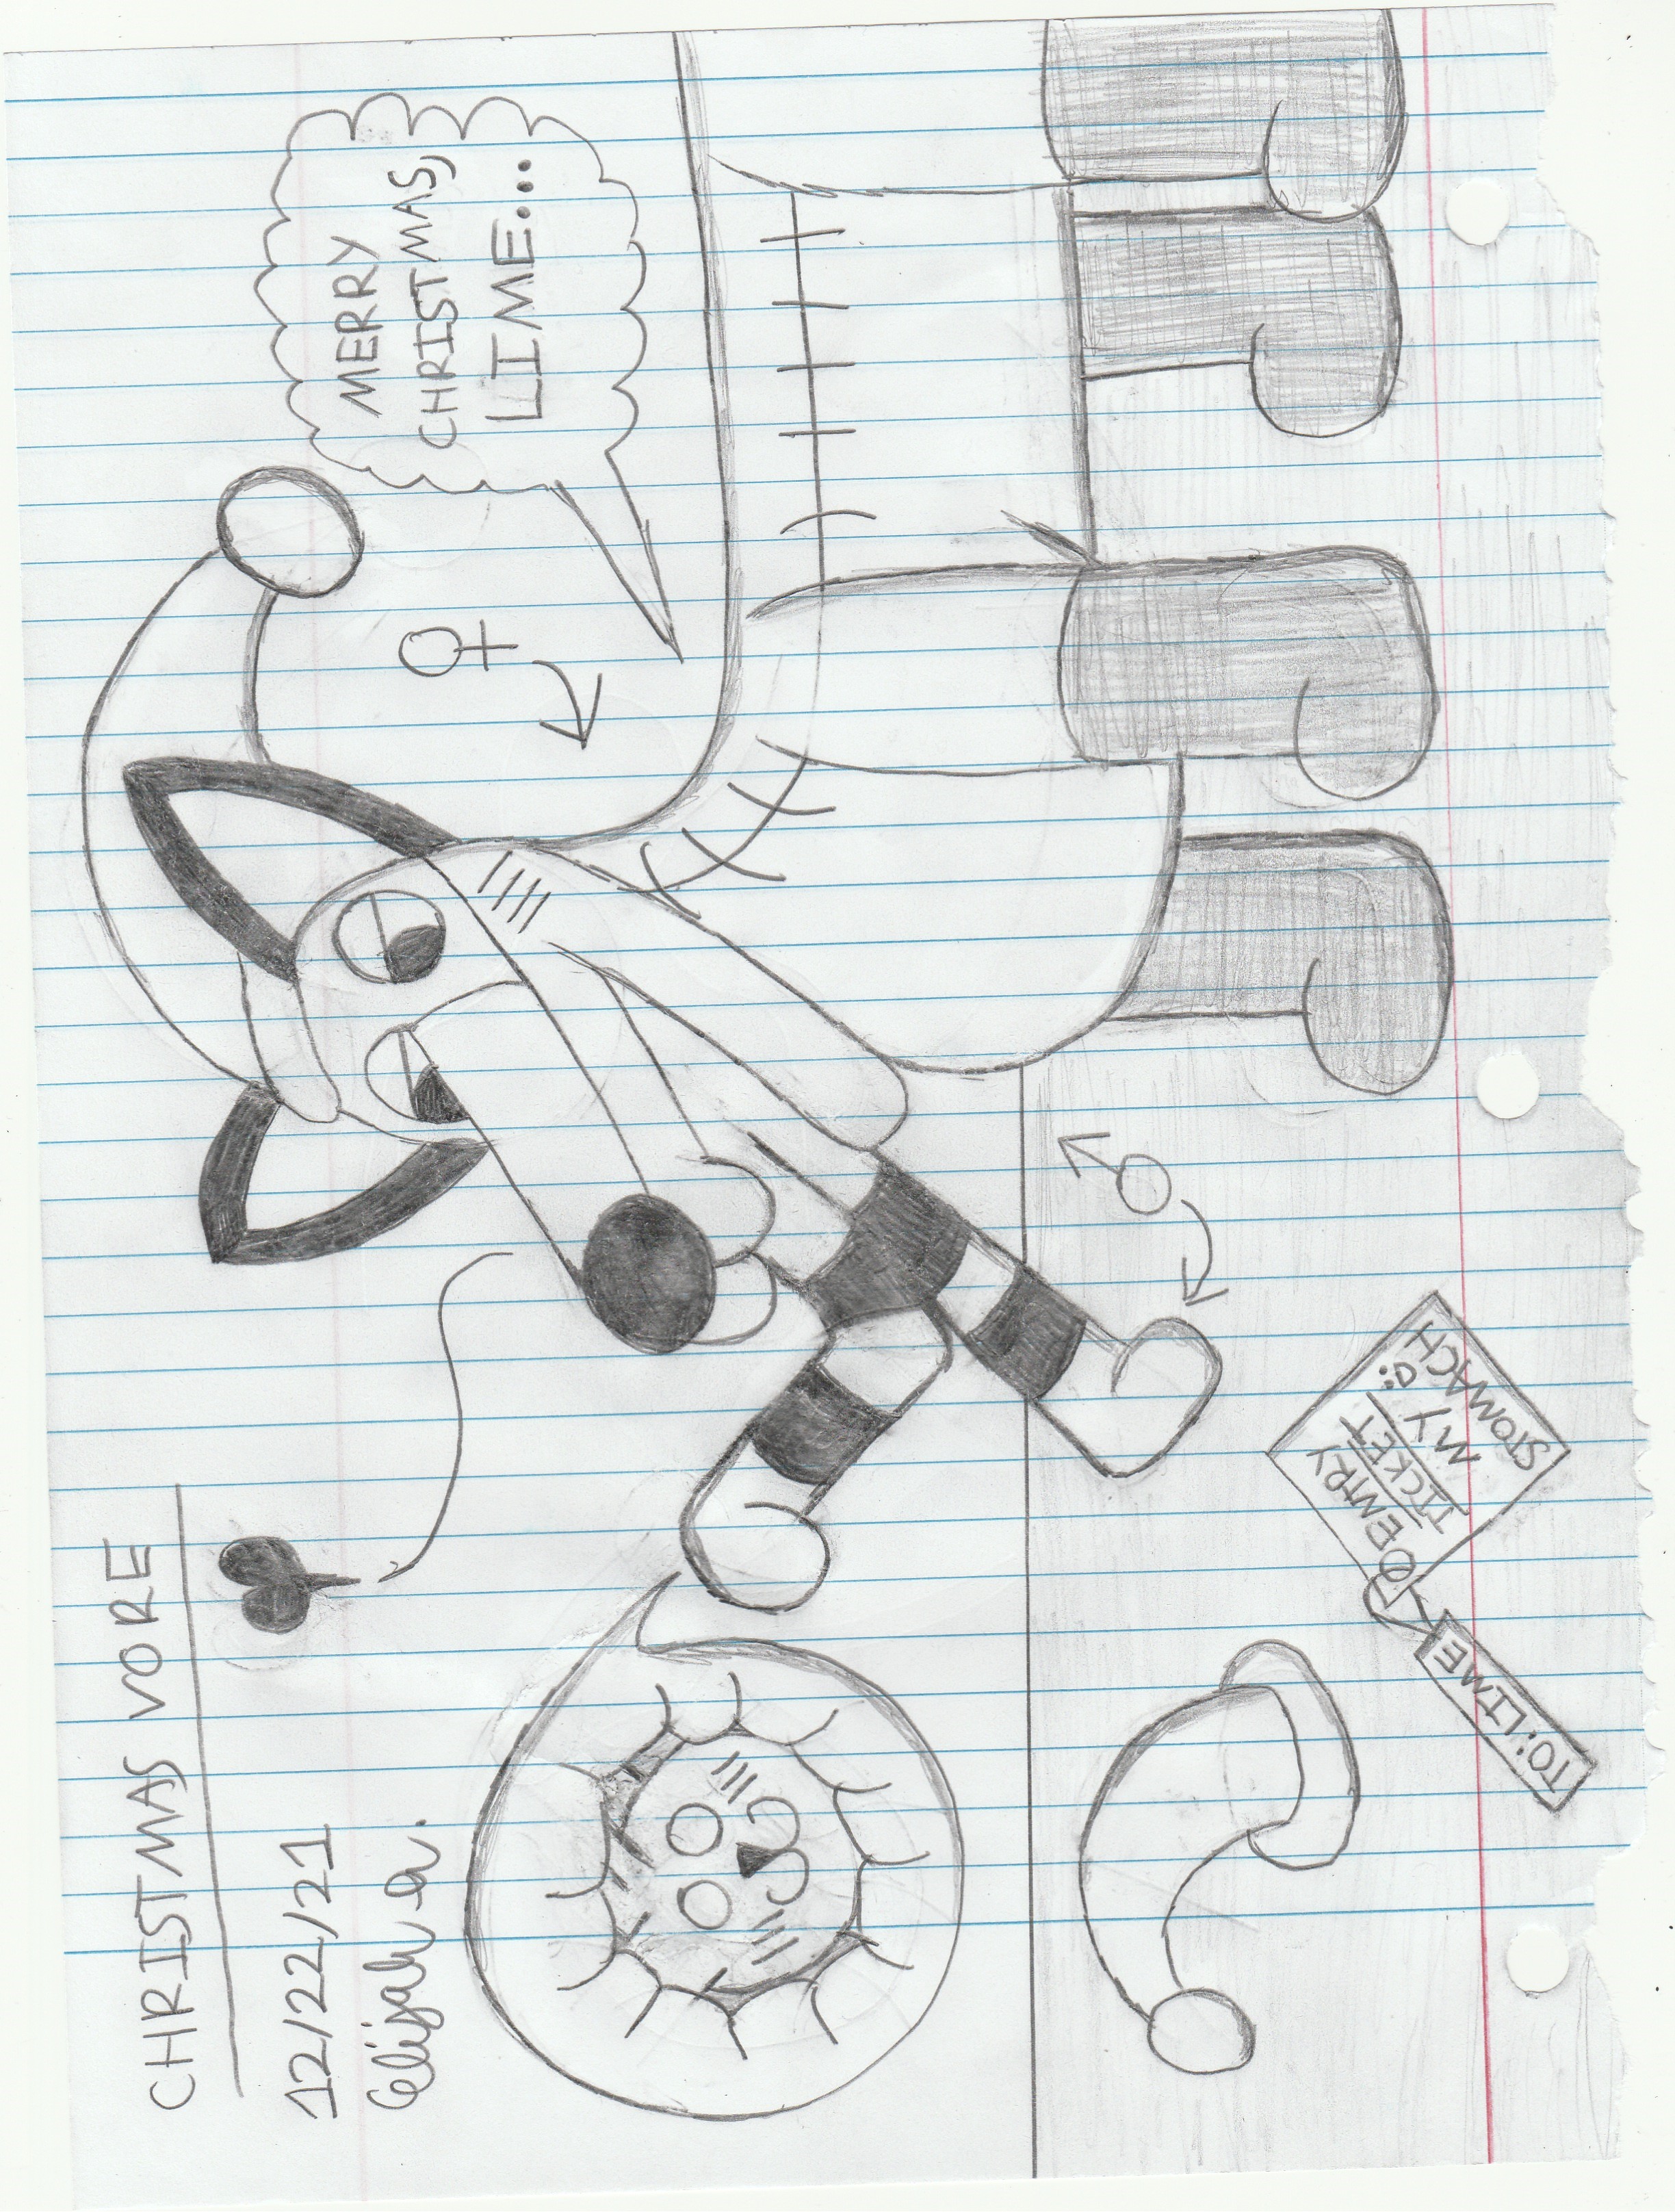 CHRISTMAS VORE
12/22/21
Elijah a.
MERRY
CHRISTMAS,
LIME...
ENTRY
TICKET
MY
STOMACH
TO: LIME